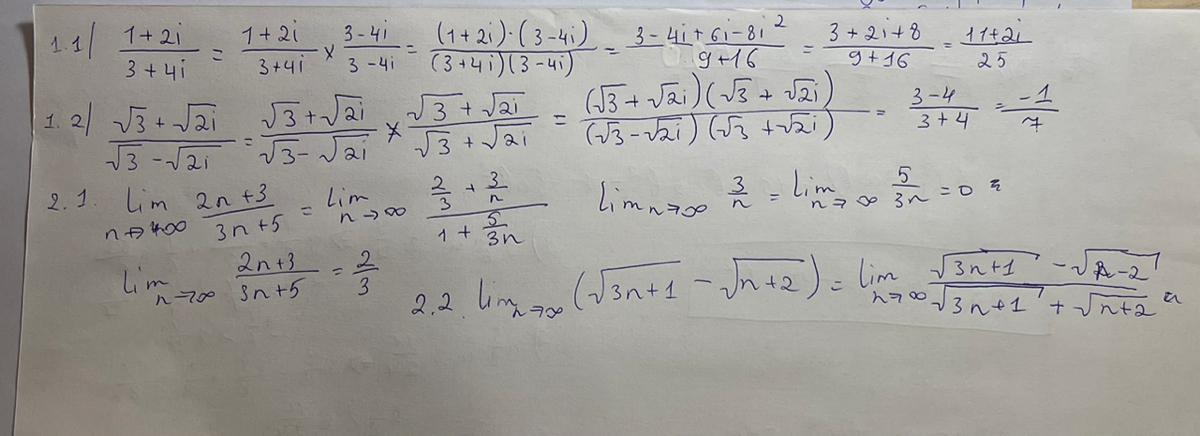 1.1/ (1+2i)/(3+4i) = (1+2i)/(3+4i) × (3-4i)/(3-4i) = ((1+2i)·(3-4i))/((3+4i)(3-4i)) = (3-4i+6i-8i²)/(9+16) = (3+2i+8)/(9+16) = (11+2i)/25
1.2/ (√3+√2i)/(√3-√2i) = (√3+√2i)/(√3-√2i) × (√3+√2i)/(√3+√2i) = ((√3+√2i)(√3+√2i))/((√3-√2i)(√3+√2i)) = (3-4)/(3+4) = -1/7
2.1. lim n→+∞ (2n+3)/(3n+5) = lim n→∞ (2/3+3/n)/(1+5/3n) lim n→∞ 3/n = lim n→∞ 5/3n = 0 =
lim n→∞ (2n+3)/(3n+5) = 2/3
2.2. lim n→∞ (√(3n+1) - √(n+2)) = lim n→∞ (√(3n+1) - √(n-2))/(√(3n+1) + √(n+2)) =